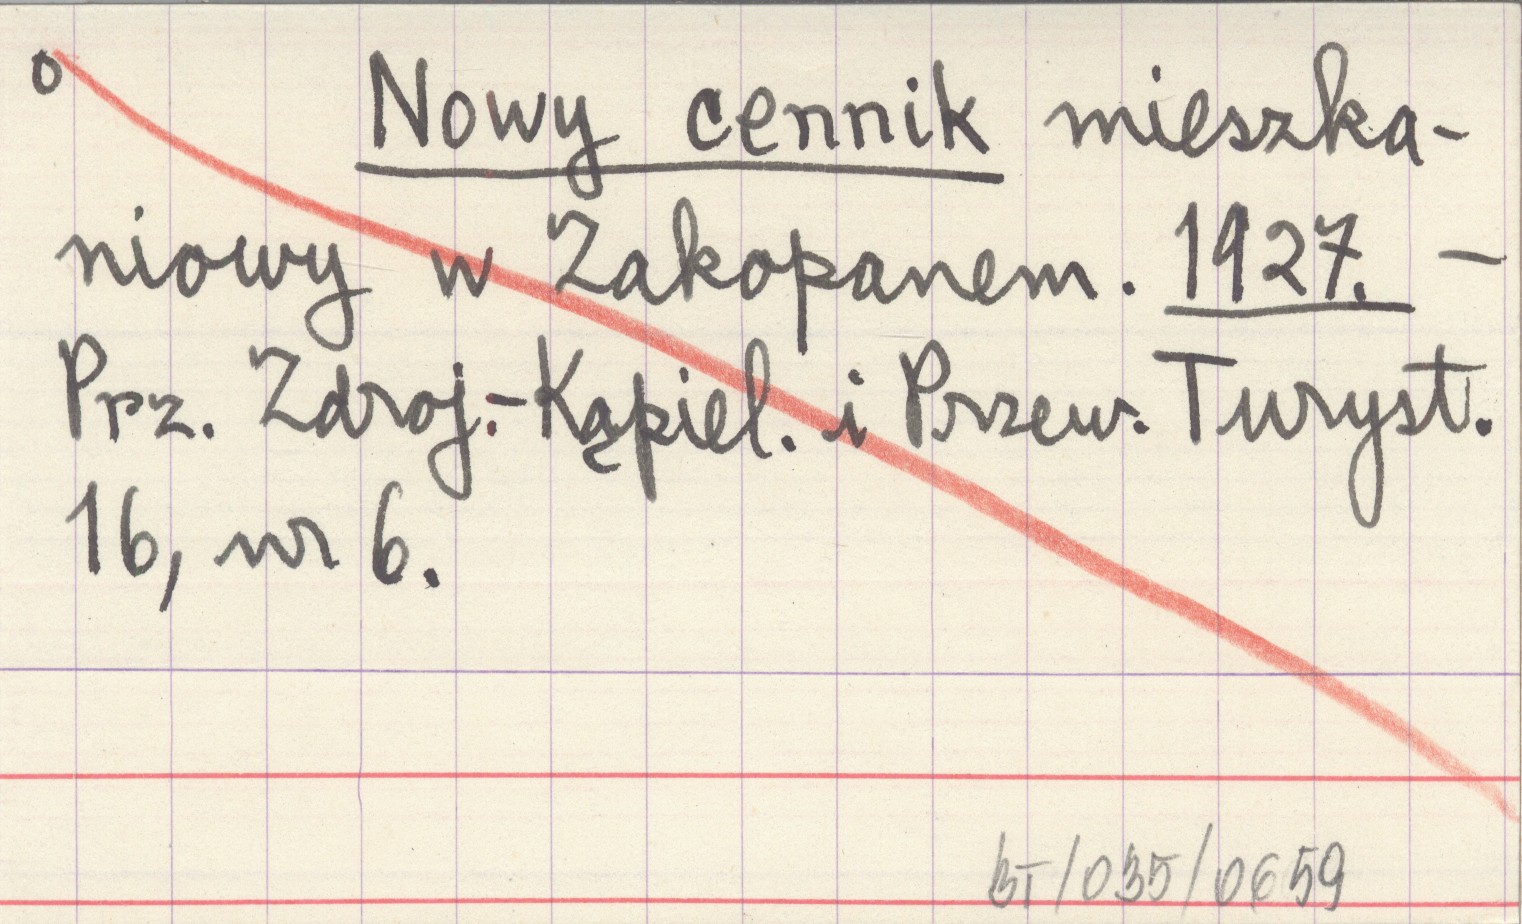 o Nowy cennik mieszka-
niowy w Zakopanem. 1927. —
Prz. Zdroj.-Kąpiel. i Przew. Turyst.
16, nr 6.
BT/035/0659